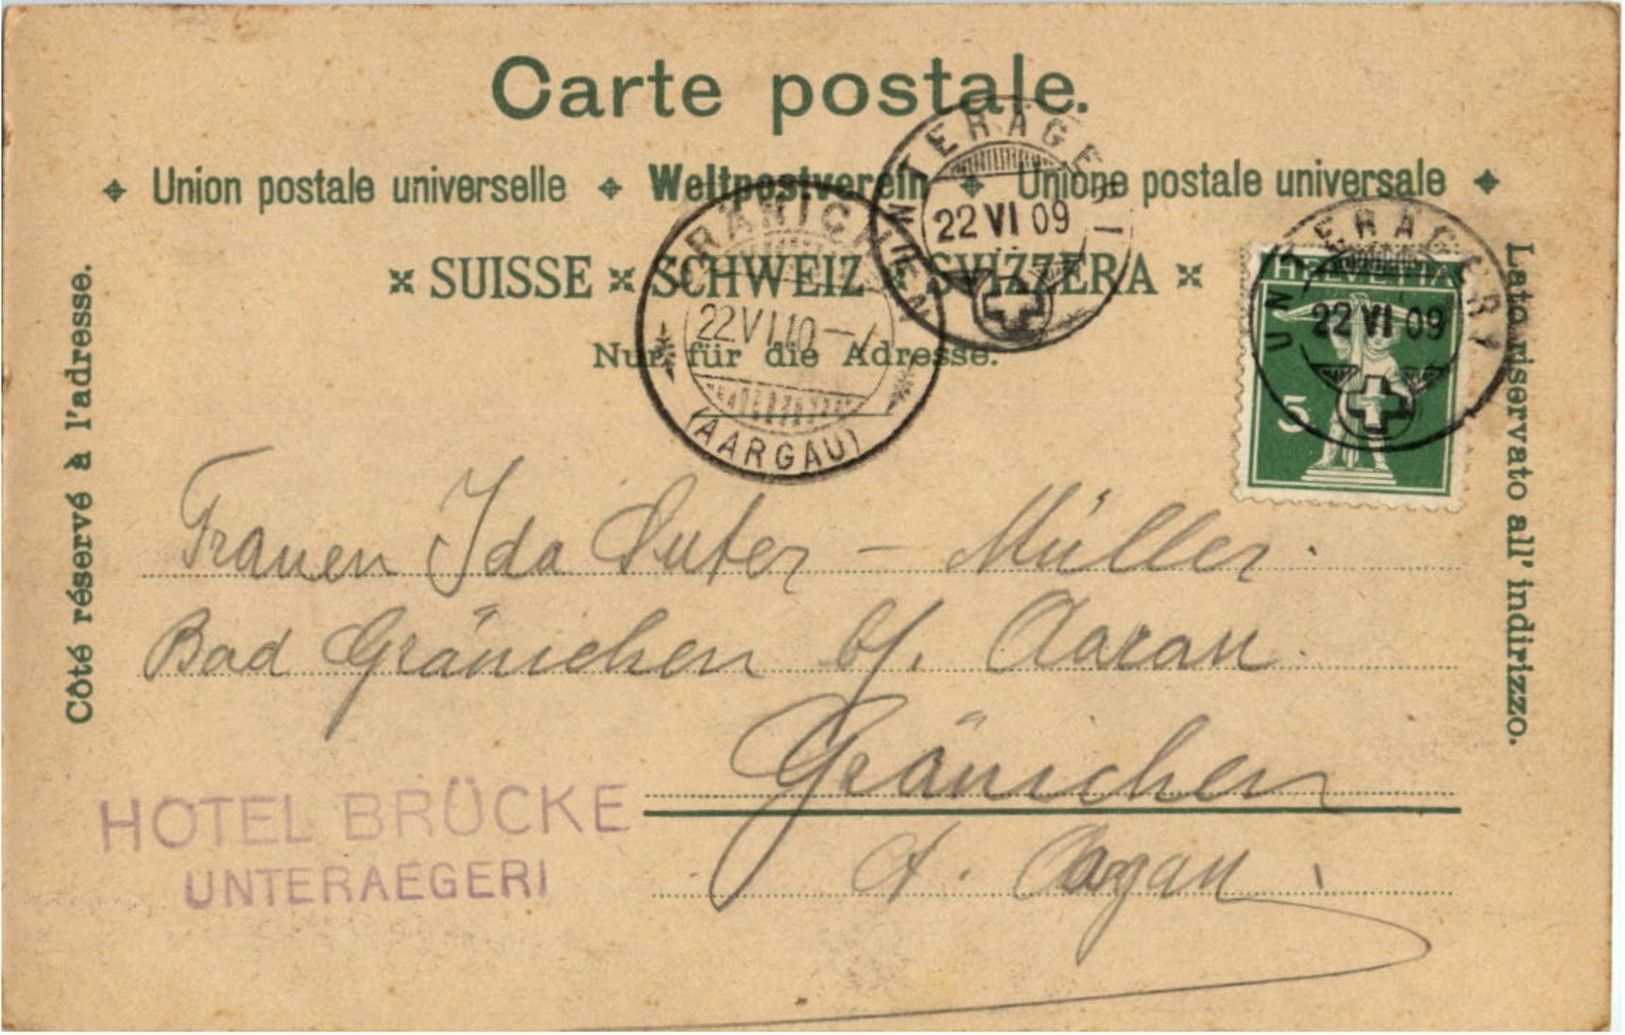 Carte postale.
Union postale universelle Weltpostverein Unione postale universale
SUISSE SCHWEIZ SVIZZERA
Nur für die Adresse.
Côté réservé à l'adresse.
Lato riservato all' indirizzo.
UNTERÄGERI
22 VI 09
GRÄNICHEN
22 VI 10
(AARGAU)
UNTERÄGERI
22 VI 09
HELVETIA
5
Frauen Ida Suter - Müller.
Bad Gränichen b/. Aarau.
Gränichen
Aargau
HOTEL BRÜCKE
UNTERAEGERI